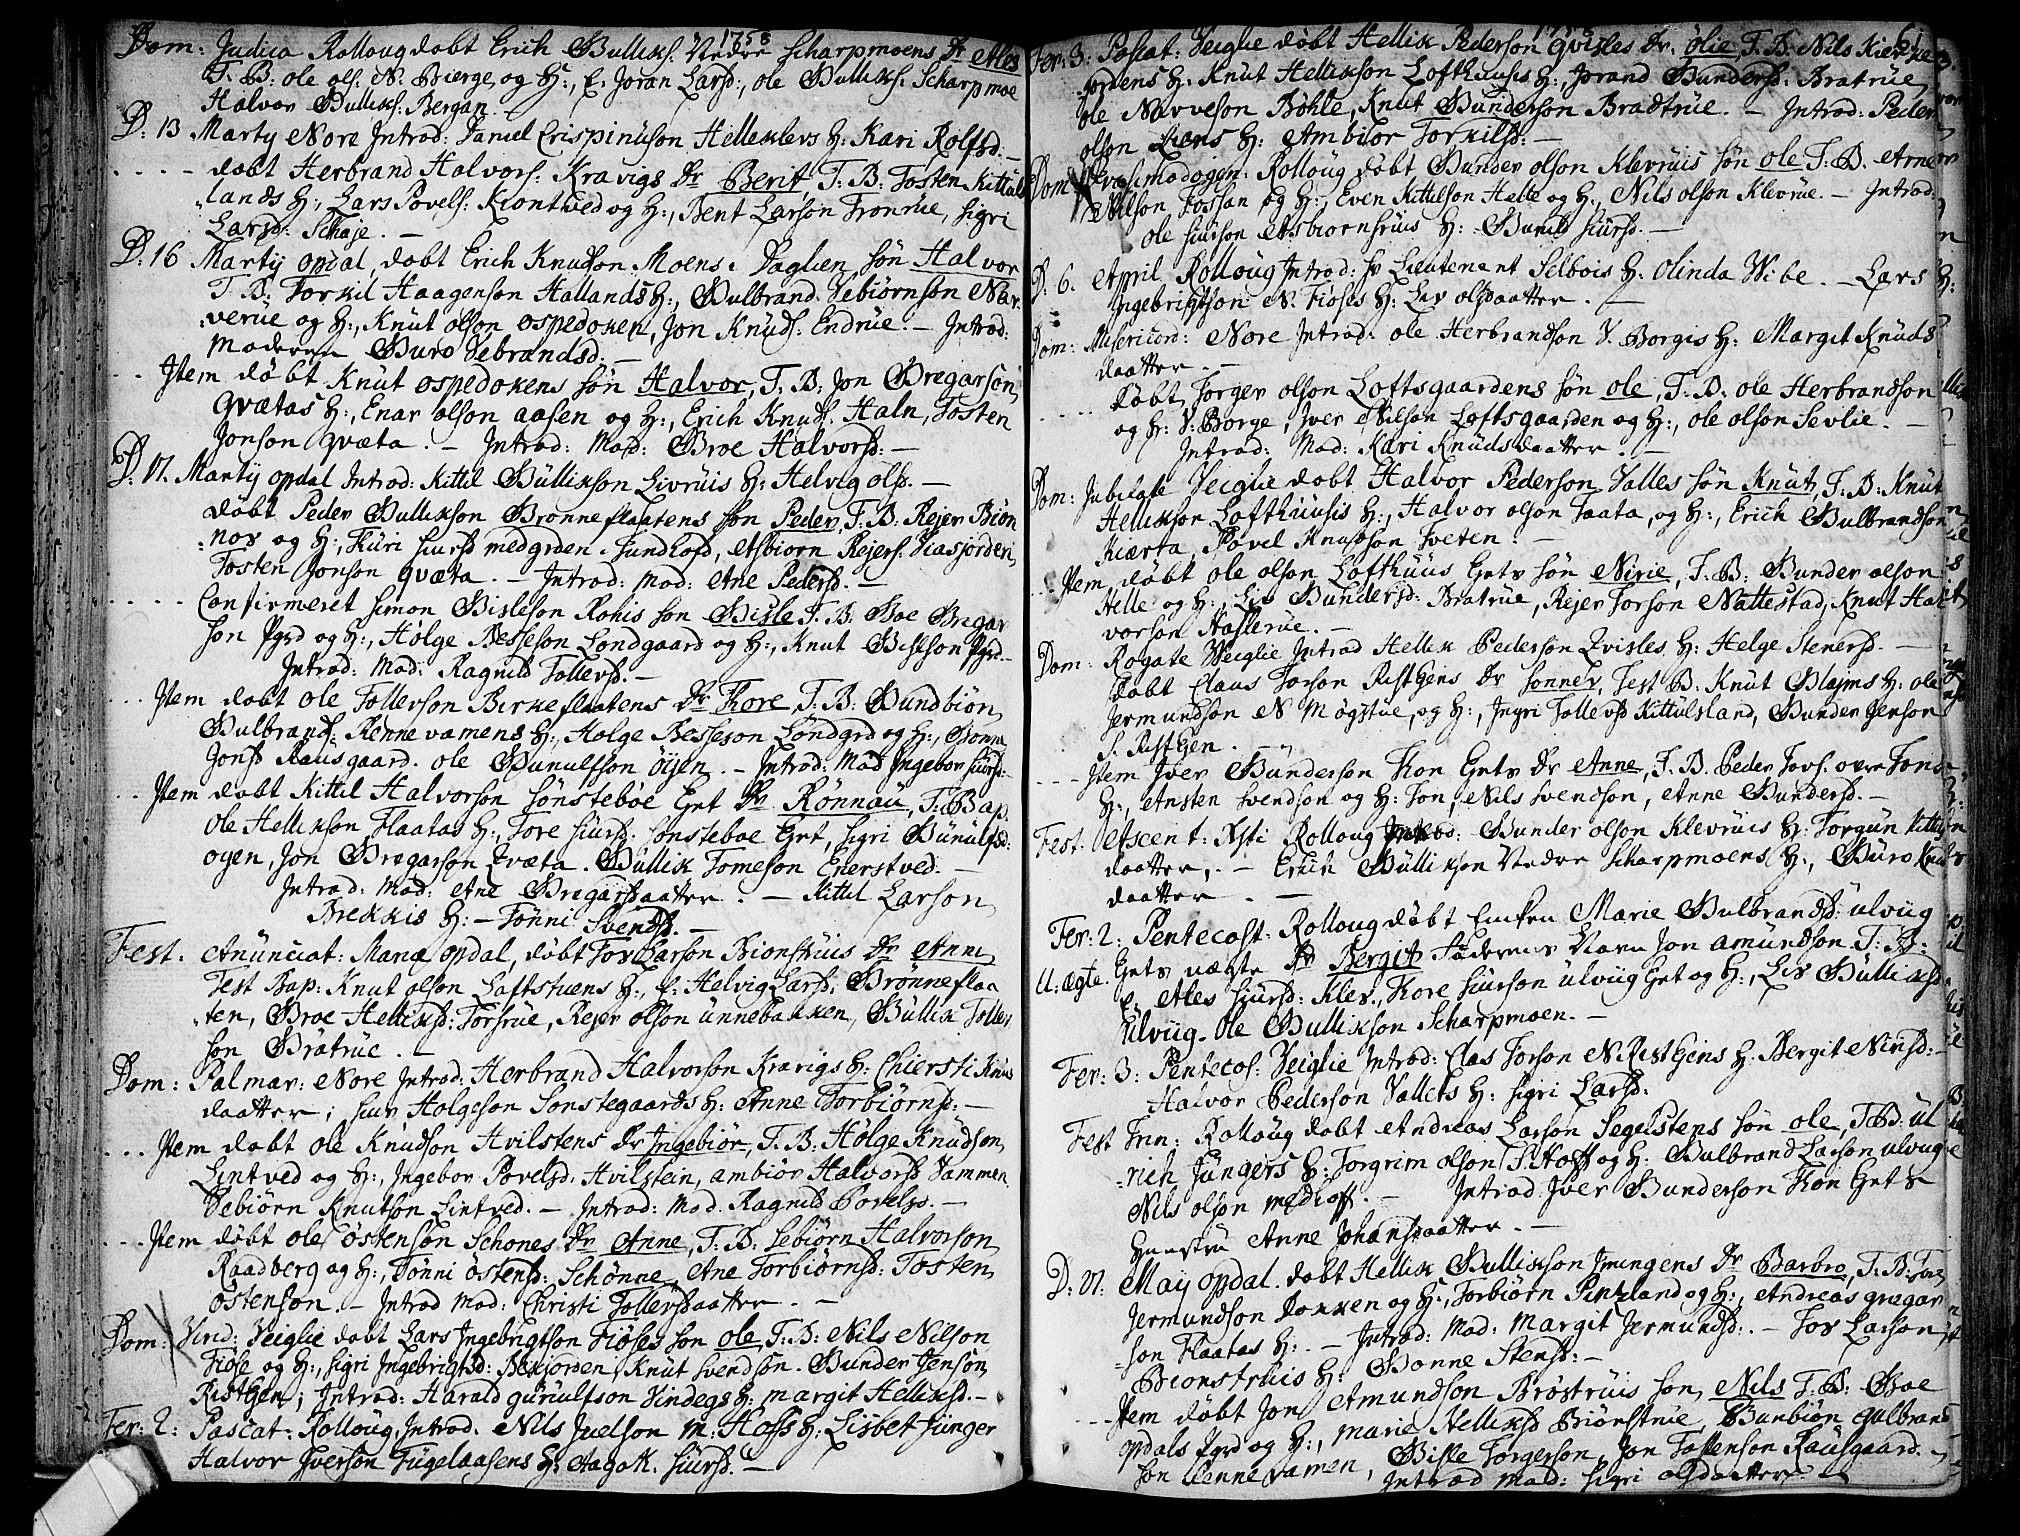 1758
Dom: Judica Rolloug dobt Erich Gulliks. Nedre Scharpmoens Dr Ales
T. B: ole ols. N. Bierge og H:, E. Joran Larsd:, ole Gulliks. Scharpmoe
Halvor Gulliks. Bergan
D: 13 Martij Nore Introd: Daniel Crispinuson Helleklevs H: Kari Rolfsd.
dobt Herbrand Halvors: Kravigs Dr Berit, T. B: Tosten Kittils
lands H:, Lars Povels: Kiontved og H:, Bent Larson Tronrue, Sigri
Larsd: Schaje.
D. 16 Martij opdal, dobt Erich Knudson Moens i Daglien søn Halvor
T. B: Torkil Haagenson Hallands H:, Gulbrand Vebiørnson Nør
verue og H:, Knut olson ospedoken, Jon Knuds: Endrue. – Introd:
Moderen Guro Vebrandsd:
Item døbt Knut ospedokens søn Halvor, T. B: Jon Gregarson
Qvætas H:, Enar olson aasen og H:, Erich Knuds. Haln, Tosten
Jonson qvæta. – Introd: Mod: Groe Halvorsd:
D. 17. Martij opdal Introd: Kittil Gullikson Livruis H: Helvig olsd.
døbt Peder Gullikson Brønneflaatens søn Peder, T. B. Rejer Biøn
nos og H:, Turi Siursd medgrden Sundhofd, Asbiorn Rejers:
Tosten Jonson qvæta. – Introd: Mod: Ane Pedersd.
Confirmeret Simon Gisleson Rokis søn Gisle T. B. Groe Gregar
son Pgrd og H:, Hølge Besseson Londgaard og H:, Knut Gislson Pgrd
Introd: Mod: Ragnild Tollevsd.
Item døbt ole Tollevson Birkeflaatens Dr Tore, T. B. Gundbiøn
Gulbrands: Rennevamens H:, Holge Besseson Londgrd og H:, Gonne
Jonsd Rausgaard. ole Gunulfson øyen. – Introd: Mod Ingebor Siursd:
Item døbt Kittil Halvorson Sønsteboe Eiet Dr Rønnau, T. Bap.
ole Hellikson Flaatas H:, Tore Siursd. Sønsteboe Eiet, Sigri Gunulfsd:
oyen, Jon Gregarson Qvæta. Gullik Tomeson Enerstved.
Introd: Mod: Ane Gregarsdaatter. – Kittil Larson
Brekkis H: – Tønni Svendsd.
Fest. Anunciat: Maria opdal, døbt Tov Larson Bionstruis Dr Anne
Test Bap: Knut olson Loftstuens H:, E. Helvig Larsd: Brønneflaa
ten, Groe Helliksd: Torsrue, Rejer olson unnebakken, Gullik Tollev
son Bratrue.
Dom: Palmar: Nore Introd: Herbrand Halvorson Kravigs H: Chiersti Knuds
daatter; Siur Holgeson Sønstegaards H: Anne Torbiørnsd:
Item døbt ole Knudson Hvilstens Dr Ingebiør, T. B: Hølge Knudson
Lintved og H:, Ingebor Povelsd. Hvilstein, ambiør Halvorsd Vammen
Vebiørn Knutson Lintved. – Introd: Mod. Ragnild Povelsd.
Item døbt ole østenson Schones Dr Anne, T. B. Sebiørn Halvorson
Raadberg og H:, Tønni østensd: Schønne, Ane Torbiørnsd: Tosten
østenson. – Introd Mod: Christi Tollevsdaatter.
Dom: Vind: Veiglie dobt Lars Ingebrigtson Fiøses søn ole, T. B: Nils Nilson
Fiøse og H:, Sigri Ingebrigtsd: Bekjorden, Knut Svendson. Gunder Jenson
RistGen; Introd: Harald gunulfson Vindegs H: margit Helliksd.
Fer: 2: Pascat: Rolloug, Introd. Nils Juelson M: Hoffs H: Lisbet Jünger
Halvor Iverson Fugelaasens H: Aagot K: Siursd.
61
Fer: 3: Pascat: Veiglie døbt Hellik Pederson Qvisles Dr. Olie, T. B. Nils Kierke
jordens H: Knut Hellikson Lofthuusis H:, Jorand Gundersd: Bratrue,
ole Narveson Bøhle, Knut Gunderson Bradtrue. – Introd: Peder
olson Liens H: Ambior Torkilsd:
Dom: Qvasimodogen. Rolloug døbt Gunder olson Klevruis søn ole T. B. Arne
Nilson Fossan og H:, Even Kittelson Helle og H:, Nils olson Klevrue. – Introd:
ole Siurson Asbiornsruis H: Gunild Siursd.
D: 6. April Rolloug Introd: Hr Lieutenant Selbois H: Olinda Wibe. – Lars
Ingebrigtson N. Fiøses H: Liv olsdaatter.
Dom: Misericord: Nore Introd: ole Herbrandson Y. Borgis H: Margit Knuds
daatter.
døbt Torger olson Loftsgaardens søn ole, T. B. ole Herbrandson
og H: Y: Borge, Iver Nilson Loftsgaarden og H:, ole olson Sevlie.
Introd: Mod: Kari Knudsdaatter.
Dom: Jubilate Veiglie døbt Halvor Pederson Valles søn Knut, T. B: Knut
Hellikson Lofthuusis H:, Halvor olson Taata, og H:, Erich Gulbrandson
Kierta, Povel Knudson Tveten.
Item døbt ole olson Lofthuus Eiets søn Nirie, T. B: Gunder olson
Helle og H:, Liv Gundersd: Bratrue, Rejer Torson Nattestad, Knut Hal
vorson Haslerue.
Dom: Rogate Veiglie Introd Hellik Pederson Qvisles H: Helge Stenersd.
døbt Claus Torson RistGens Dr Sonnev, Test B. Knut Glajms H: ole
Jermundson N Mogstue, og H:, Ingri Tollevsd Kittilsland, Gunder Jenson
S. RistGen.
Item Iver Gunderson Kon Eiets Dr Anne, T. B. Peder Tovs. øvre Tond
H:, Ansten Svendson og H: Ton, Nils Svendson, Anne Gundersd.
Fest. Ascent: Xsti Rolloug Introd: Gunder olson Klevruis H: Torgun Kittils
daatter, – Erich Gullikson Nedre Scharpmoens H:, Guro Knuds
daatter.
Fer: 2: Pentecost: Rolloug døbt Enken Marie Gulbrandsd: ulviig
U: ægte. Eiets uægte Dr Bergit Faderens Navn Jon amundson T: B:
E. Ales Siursd: Klev., Tore Siurson ulviig Eiet og H:, Liv Gulliksd
ulviig. ole Gullikson Scharpmoen.
Fer: 3: Pentecos: Veiglie Introd: Clas Torson N. RistGens H: Bergit Nirisd:
Halvor Pederson Vallets H: Sigri Larsd:
Fest Trin: Rolloug døbt Andreas Larson Segelstens søn ole, T: B: Ul
rich Jüngers H: Torgrim olson T. Hoff og H: Gulbrand Larson ulvig
Nils olson Medhoff. – Introd. Iver Gunderson Kon Eiets
Huustru Anne Johansdaatter.
D: 17: May opdal. døbt Hellik Gullikson Imingens Dr Barbro, T. B: Tore
Jermundson Dokken og H:, Torbiørn Pintzland og H:, Andreas gregar
son Flaatas H:. – Introd: Mod: Margit Jermundsd:. – Tov Larson
Bionstruis H: Gonne Stensd:
Item døbt Jon Amundson Brøstruis søn Nils T. B: Groe
opdals Pgrd og H:, Marie Helliksd Biørnstrue, Gunbiøn gulbrands
son Rennevamen, Gisle Torgerson, Jon Tostenson Rausgaard.
Introd Mod: Sigri olsdaatter